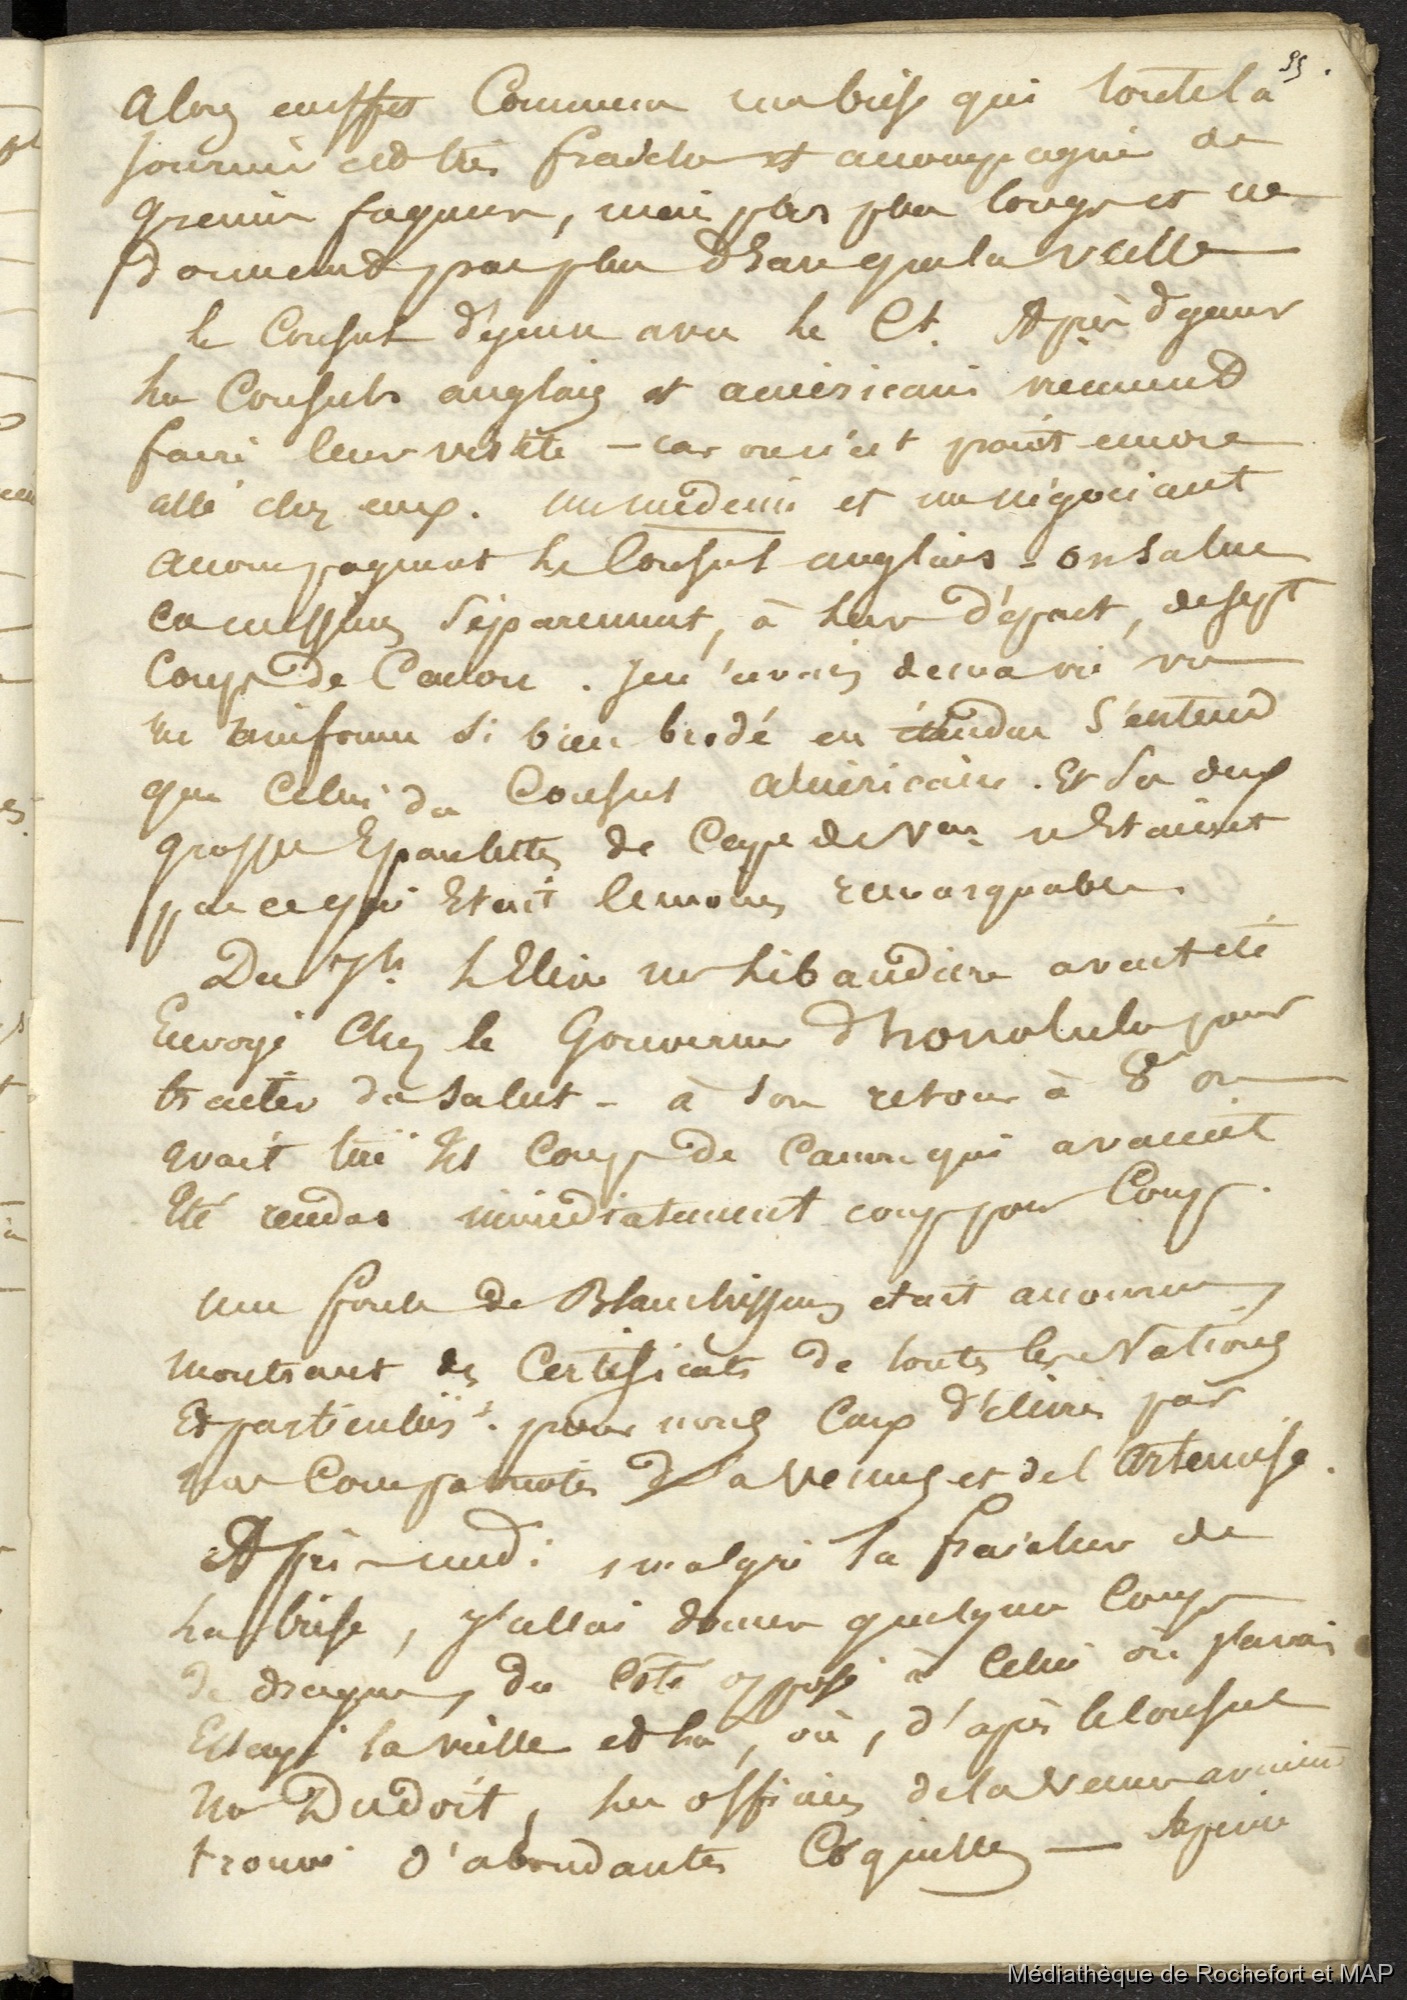 55.
alors en effet Commence une brise qui toute la
journée est très fraiche et accompagnée de
grains fréquens, mais pas plus longs et ne
donnent pas plus d'Eau que la veille
le Consul déjeune avec le Ct. Après déjeuner
les Consuls anglais et américain viennent
faire leur visite – car on n'est point encore
allé chez eux. un médecin et un négociant
accompagnent le Consul anglais – on salue
ces messieurs séparement, à leur départ, de sept
Coups de Canon. Je n'avais de ma vie vu
un uniforme si bien brodé en étendue s'entend
que celui du Consul américain. Et Ses deux
grosses Epaulettes de Cape de Veau n'Etaient
pas ce qui Etait le moins remarquable.
Dès 7h. l'Elève mr Libaudière avait été
Envoyé Chez le Gouverneur d'honolulu pour
traiter du salut – à son retour à 8h on
avait tiré les Coups de Canon qui avaient
Eté rendus immédiatement coup pour Coup.
une foule de Blanchisseurs etait accourue,
montrant des Certificats de toutes les Nations
Et particulièrt. pour nous Ceux d'élivrés par
nos Compatriotes de la Venus et de l'Artemise.
Après midi malgré la fraicheur de
la brise, j'allai donner quelques Coups
de drague, du Côté opposé à Celui où j'avais
Essayé la veille et là, où, d'après le Consul
Mr Dudoit, les officiers de la Venus avaient
trouvé d'abondantes Coquilles — A peine
Médiathèque de Rochefort et MAP